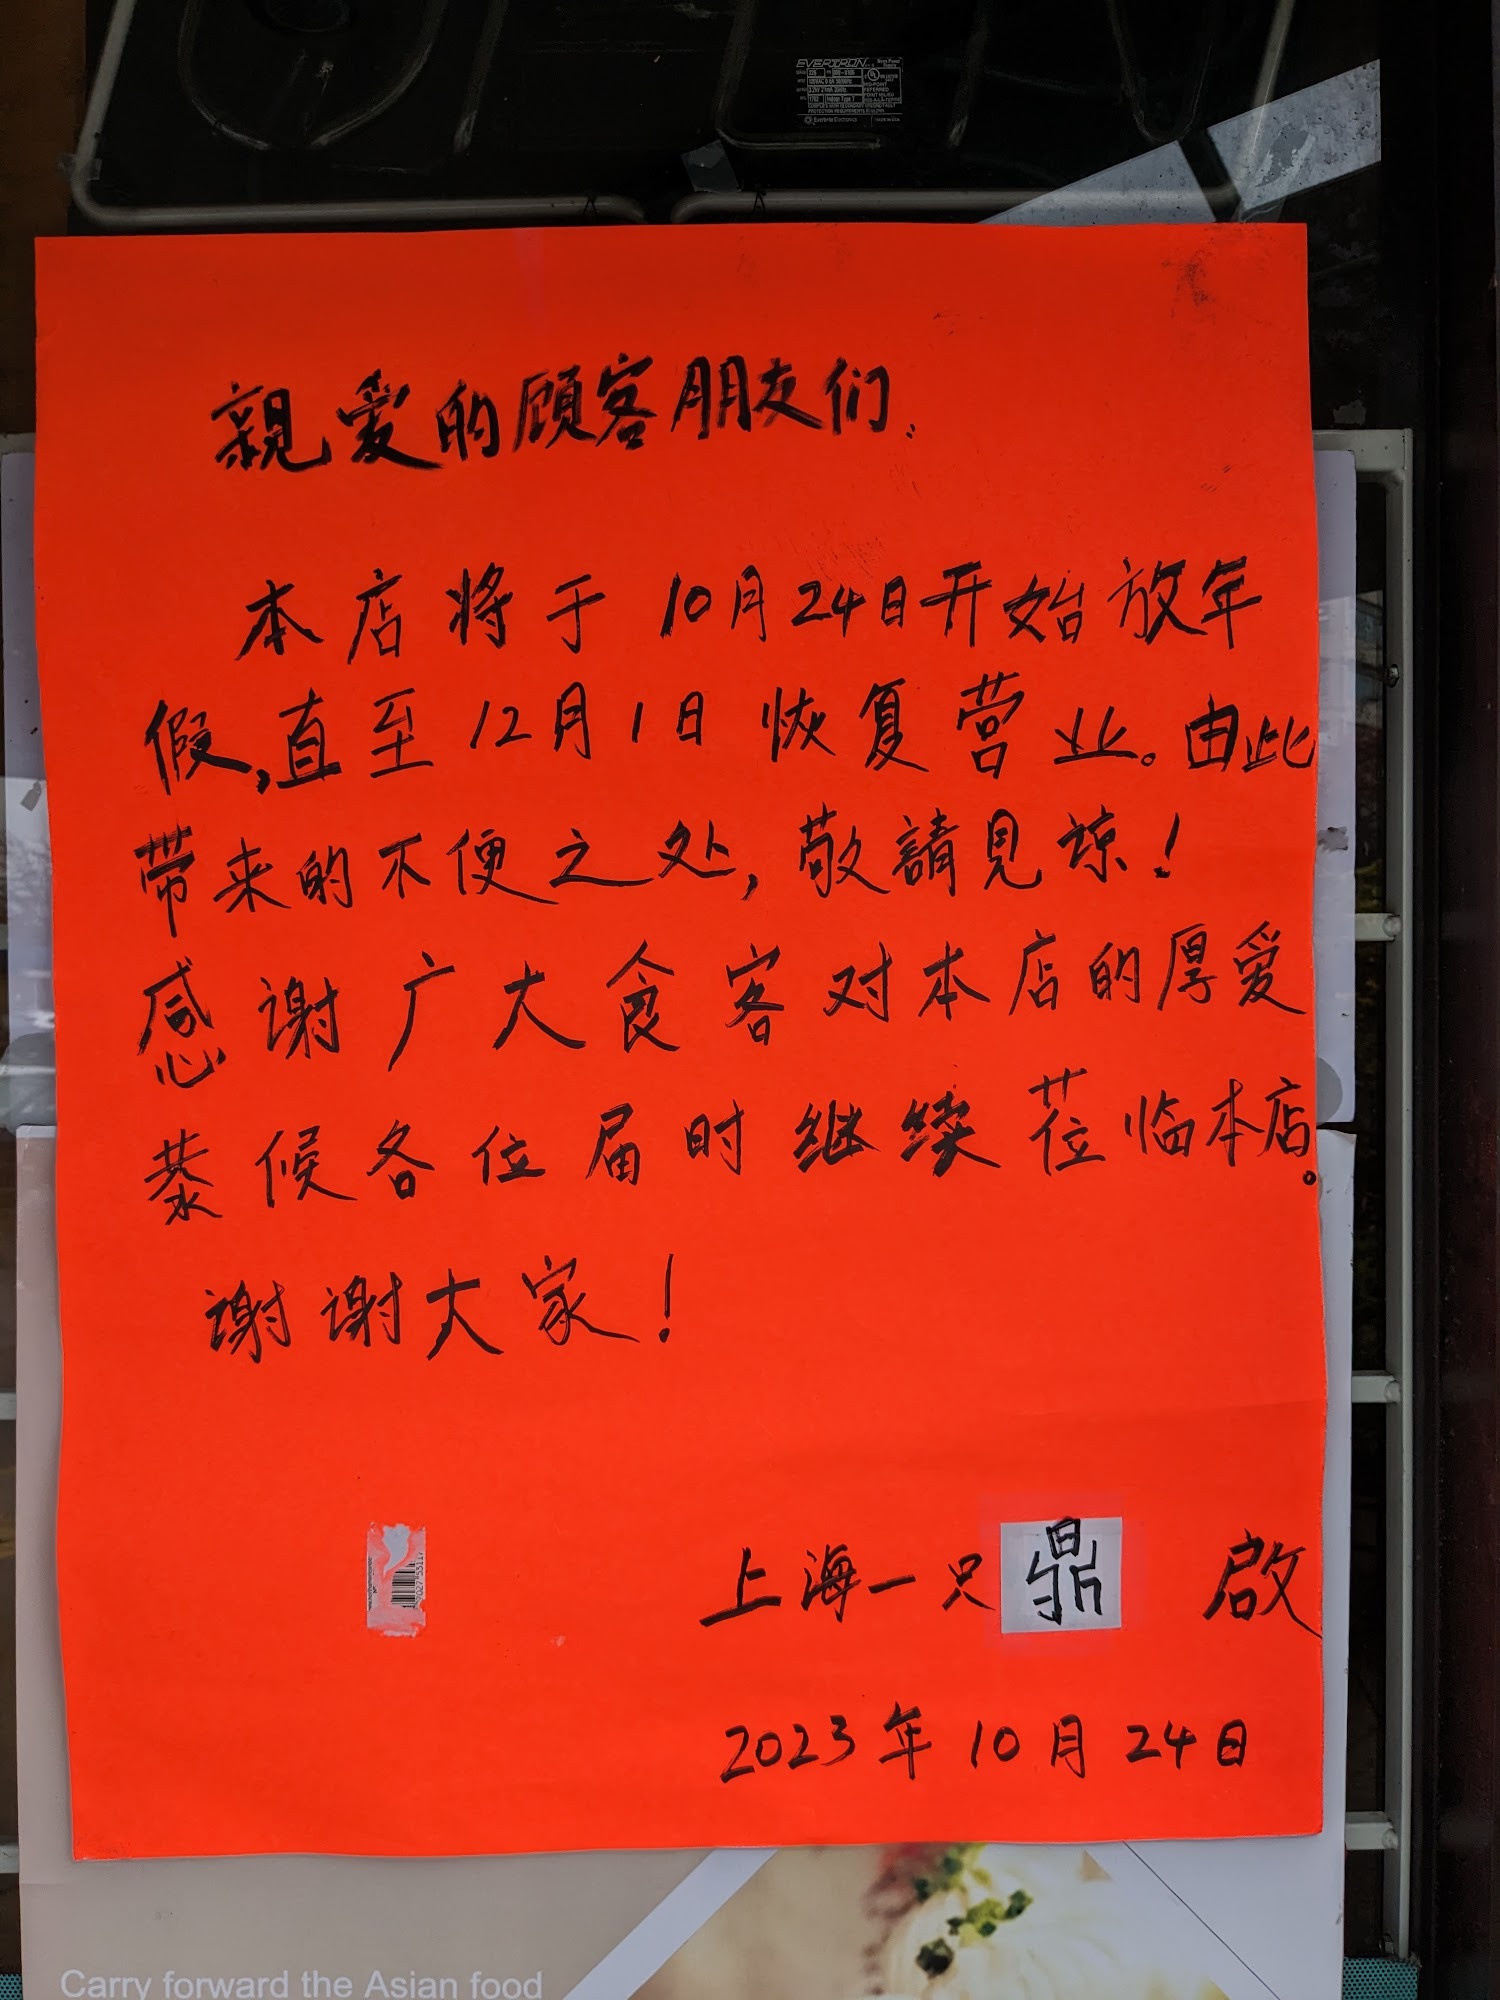 EVERTRON
親爱的顾客朋友们:
本店将于10月24日开始放年
假,直至12月1日恢复营业。由此
带来的不便之处,敬請見谅!
感谢广大食客对本店的厚爱
恭候各位届时继续莅临本店。
谢谢大家!
上海一只鼎 啟
2023年10月24日
Carry forward the Asian food